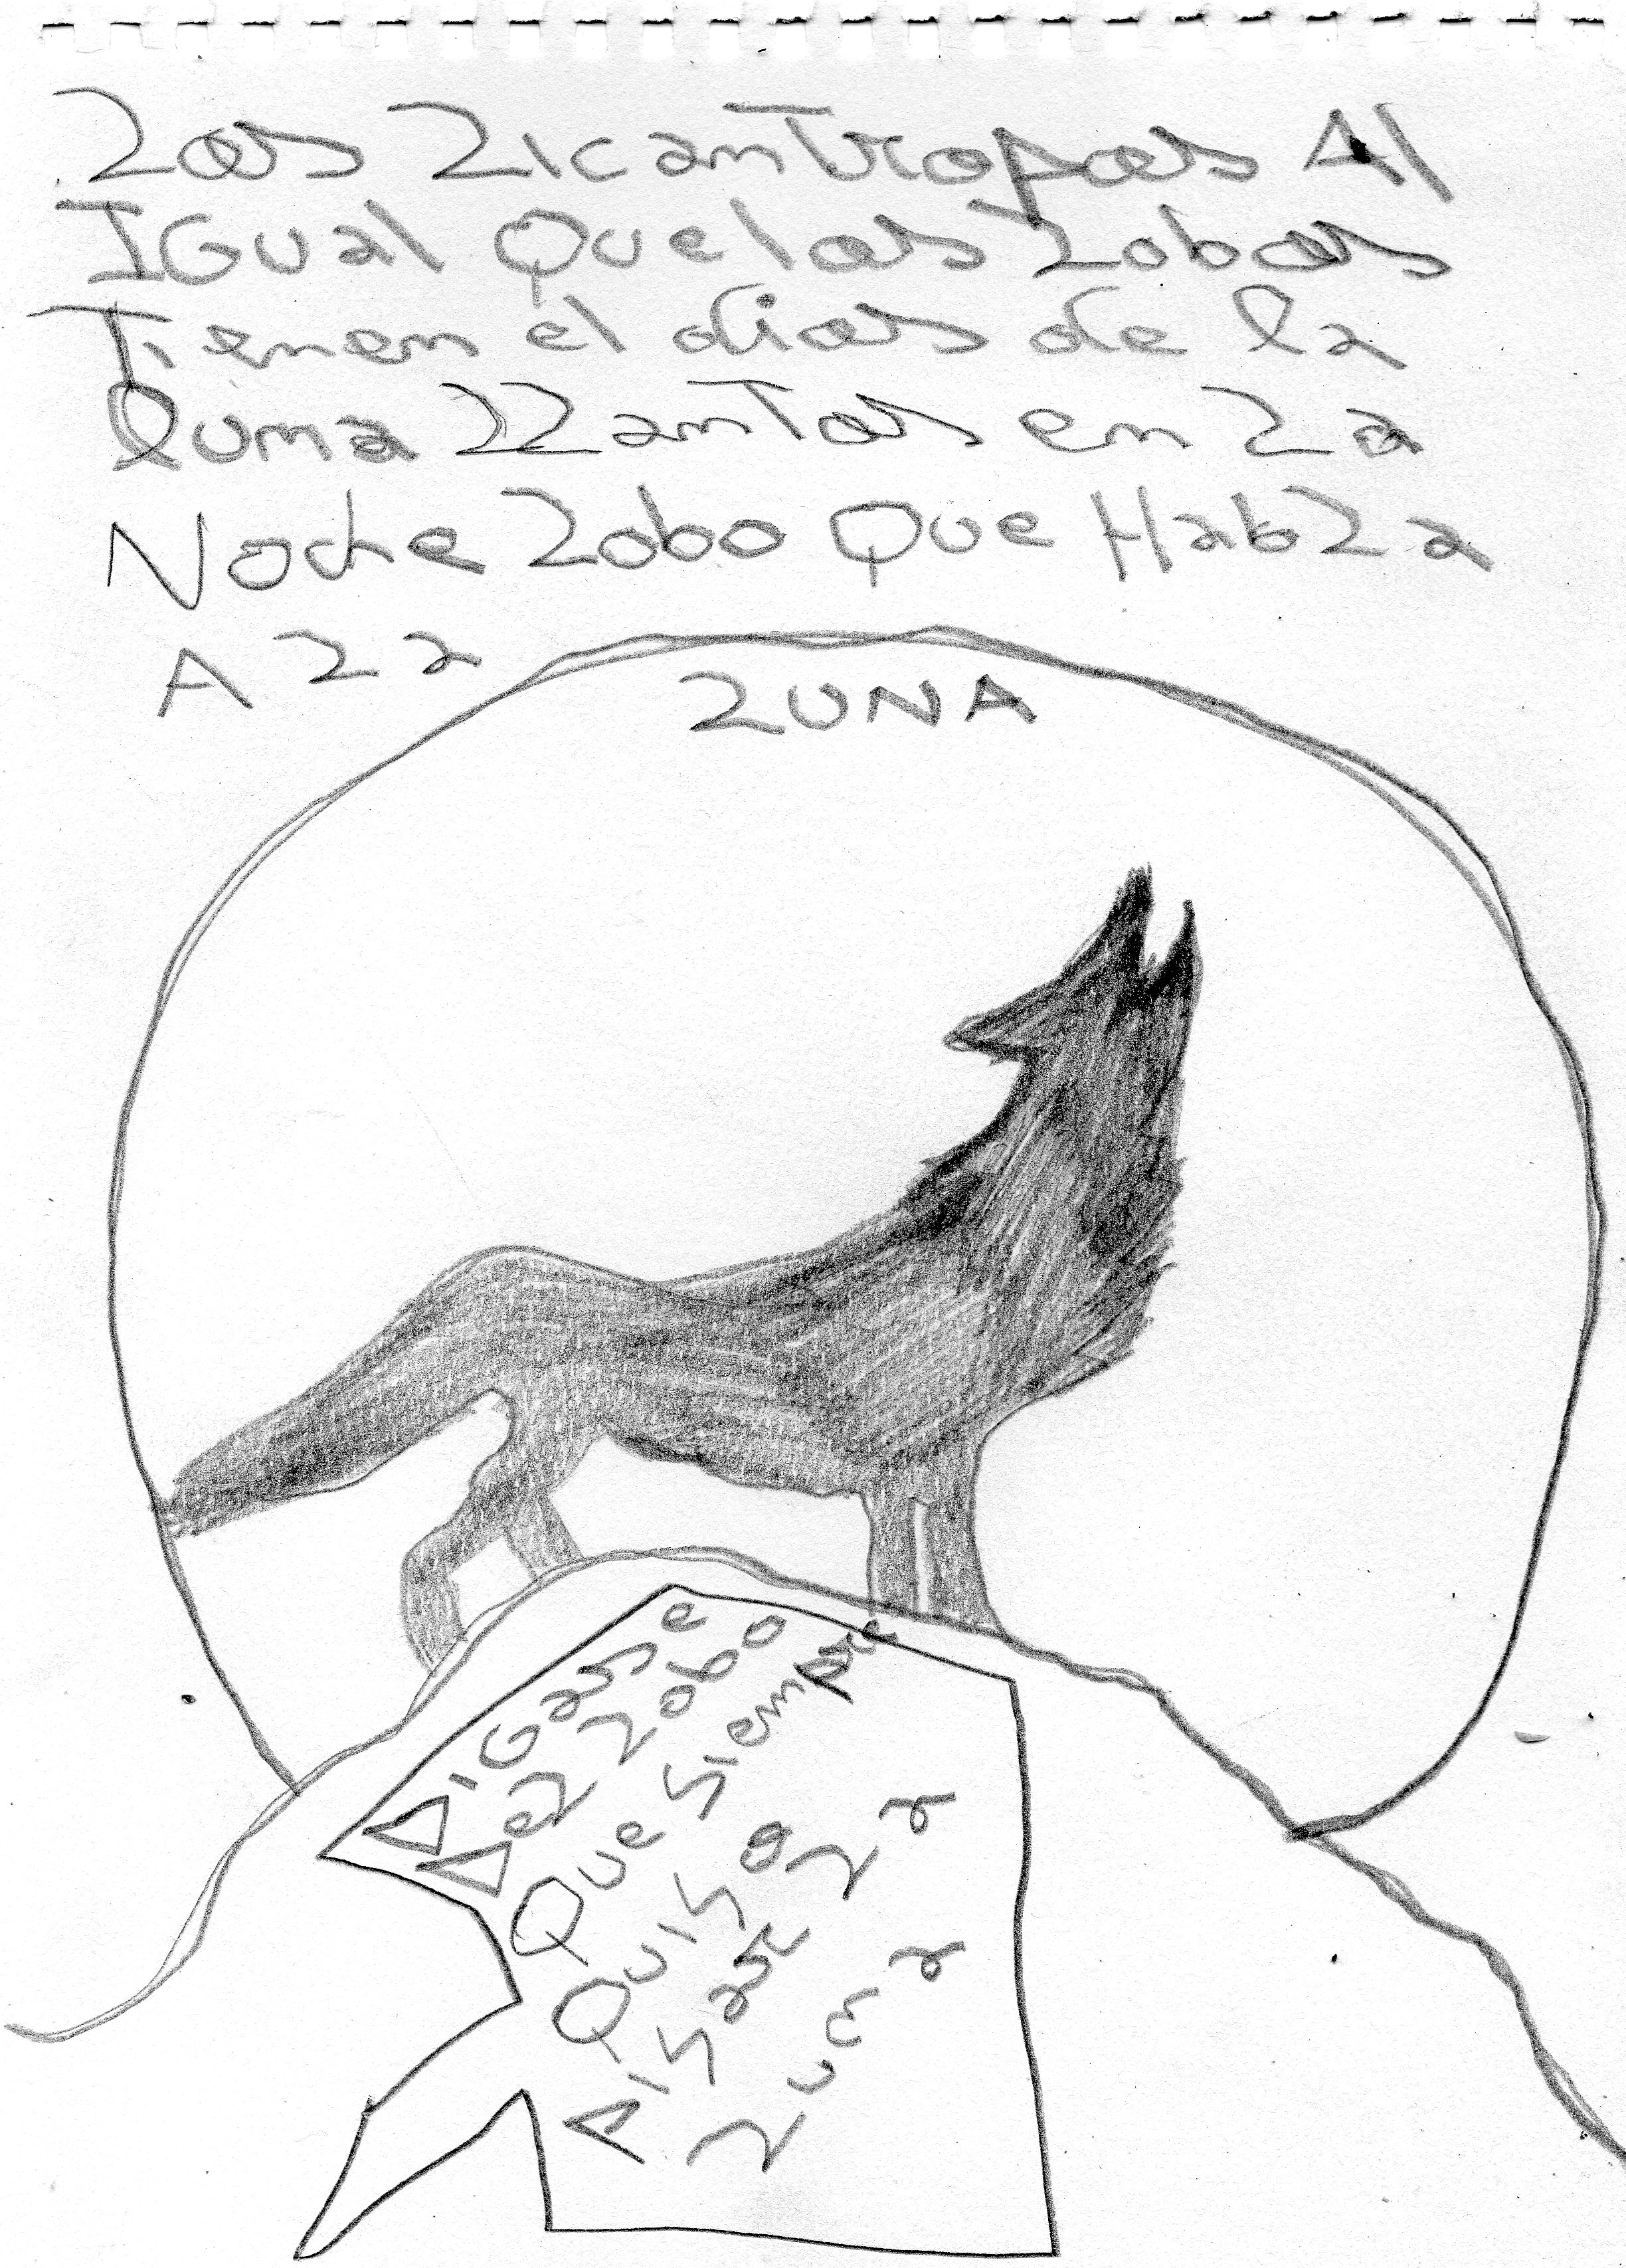 Los Licantropos Al
IGual Que los Lobos
Tienen el dios de la
luna LLantos en La
Noche Lobo Que HabLa
A La
LUNA
DiGanse
DeL Lobo
Que siempre
Quiso La
Disare
Luna